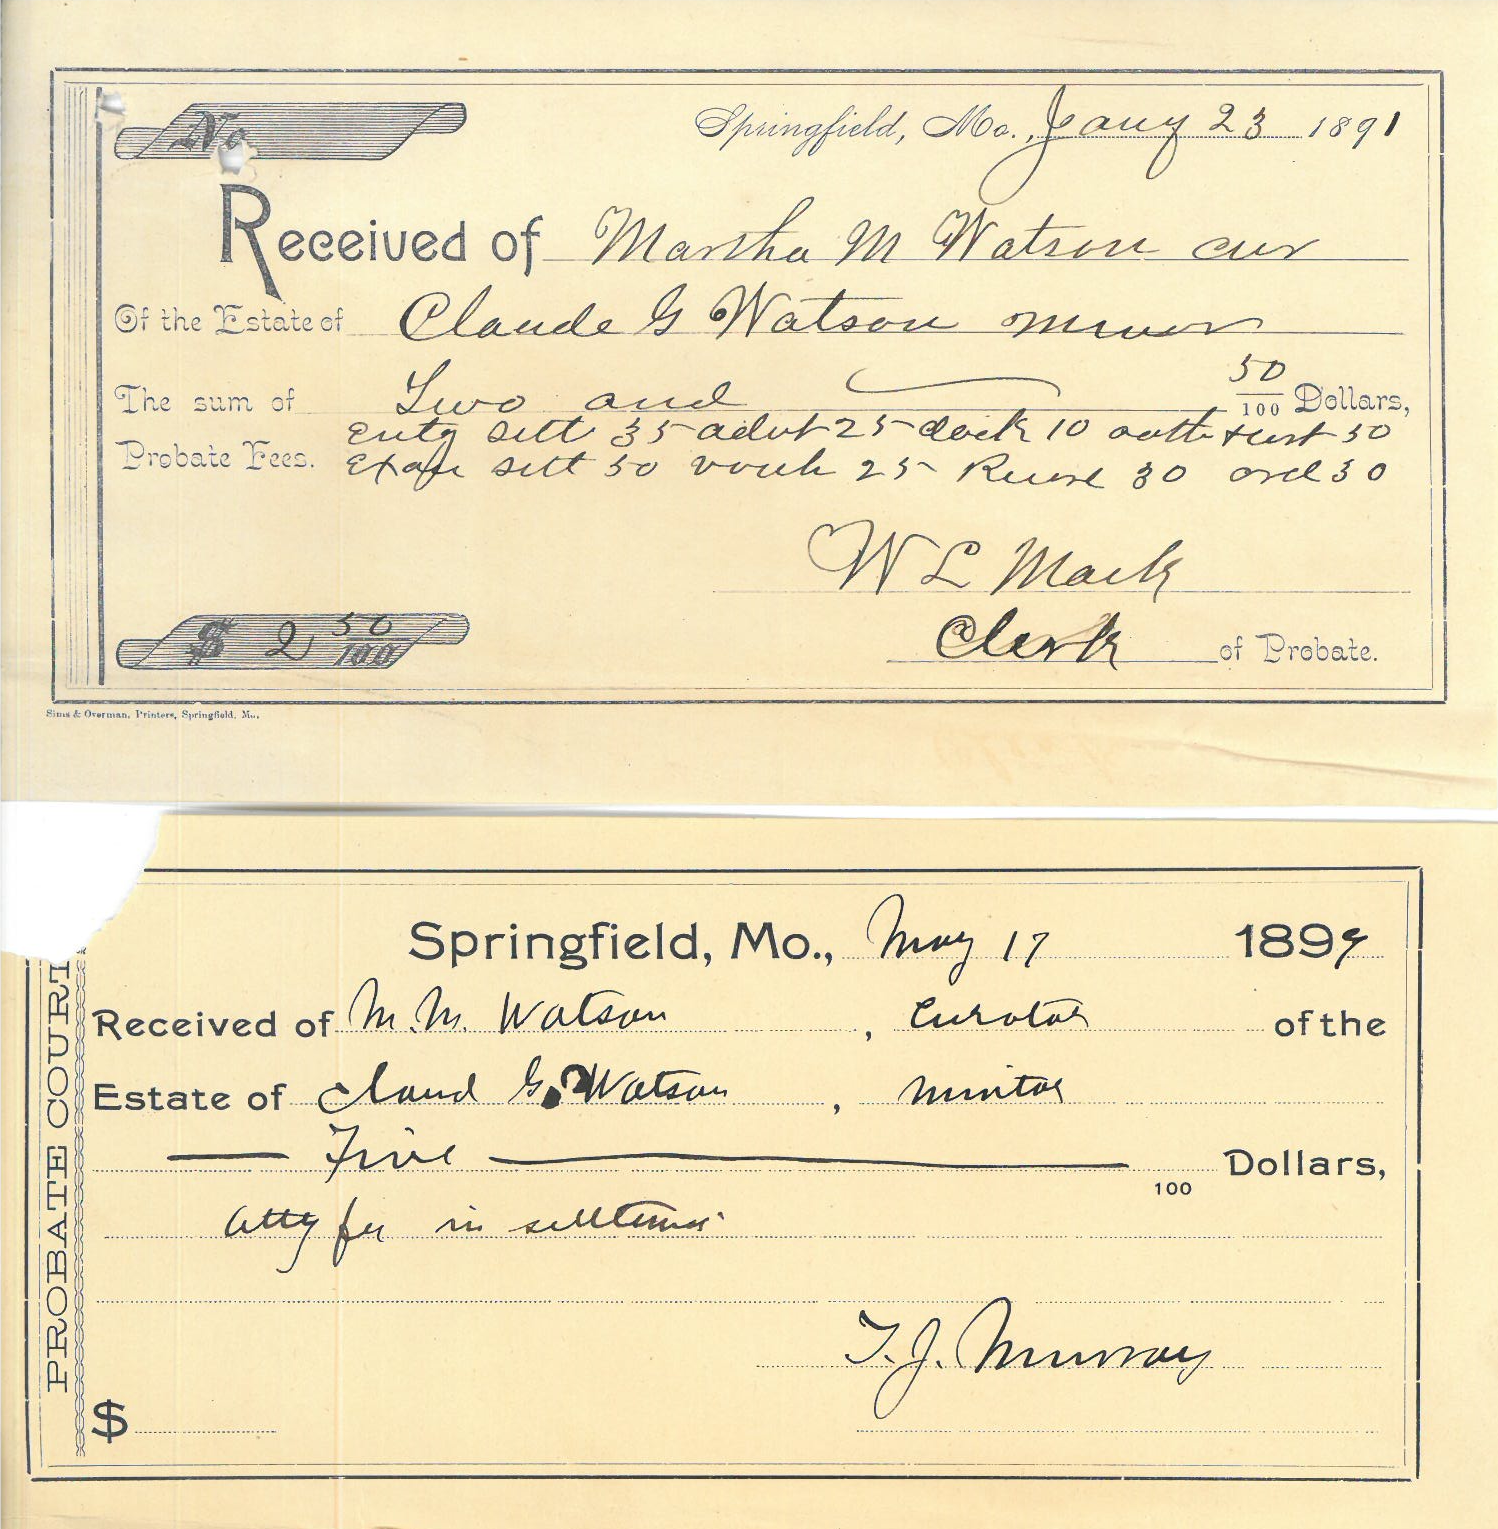 No
Springfield, Mo., Jany 23 1891
Received of Martha M Watson cur
Of the Estate of Claude G Watson minor
The sum of Two and 50/100 Dollars,
Probate Fees.
entg sett 35 advt 25 dock 10 oath & cert 50
Exam sett 50 vouch 25 30 ord 30
W L Mack
Clerk of Probate.
$ 2 50/100
Sims & Overman, Printers, Springfield, Mo.
PROBATE COURT
Springfield, Mo., May 17 1899
Received of M. M. Watson, Curator of the
Estate of Claud G. Watson, minor
Five 100 Dollars,
Atty fee in settlement
T. J. Murray
$